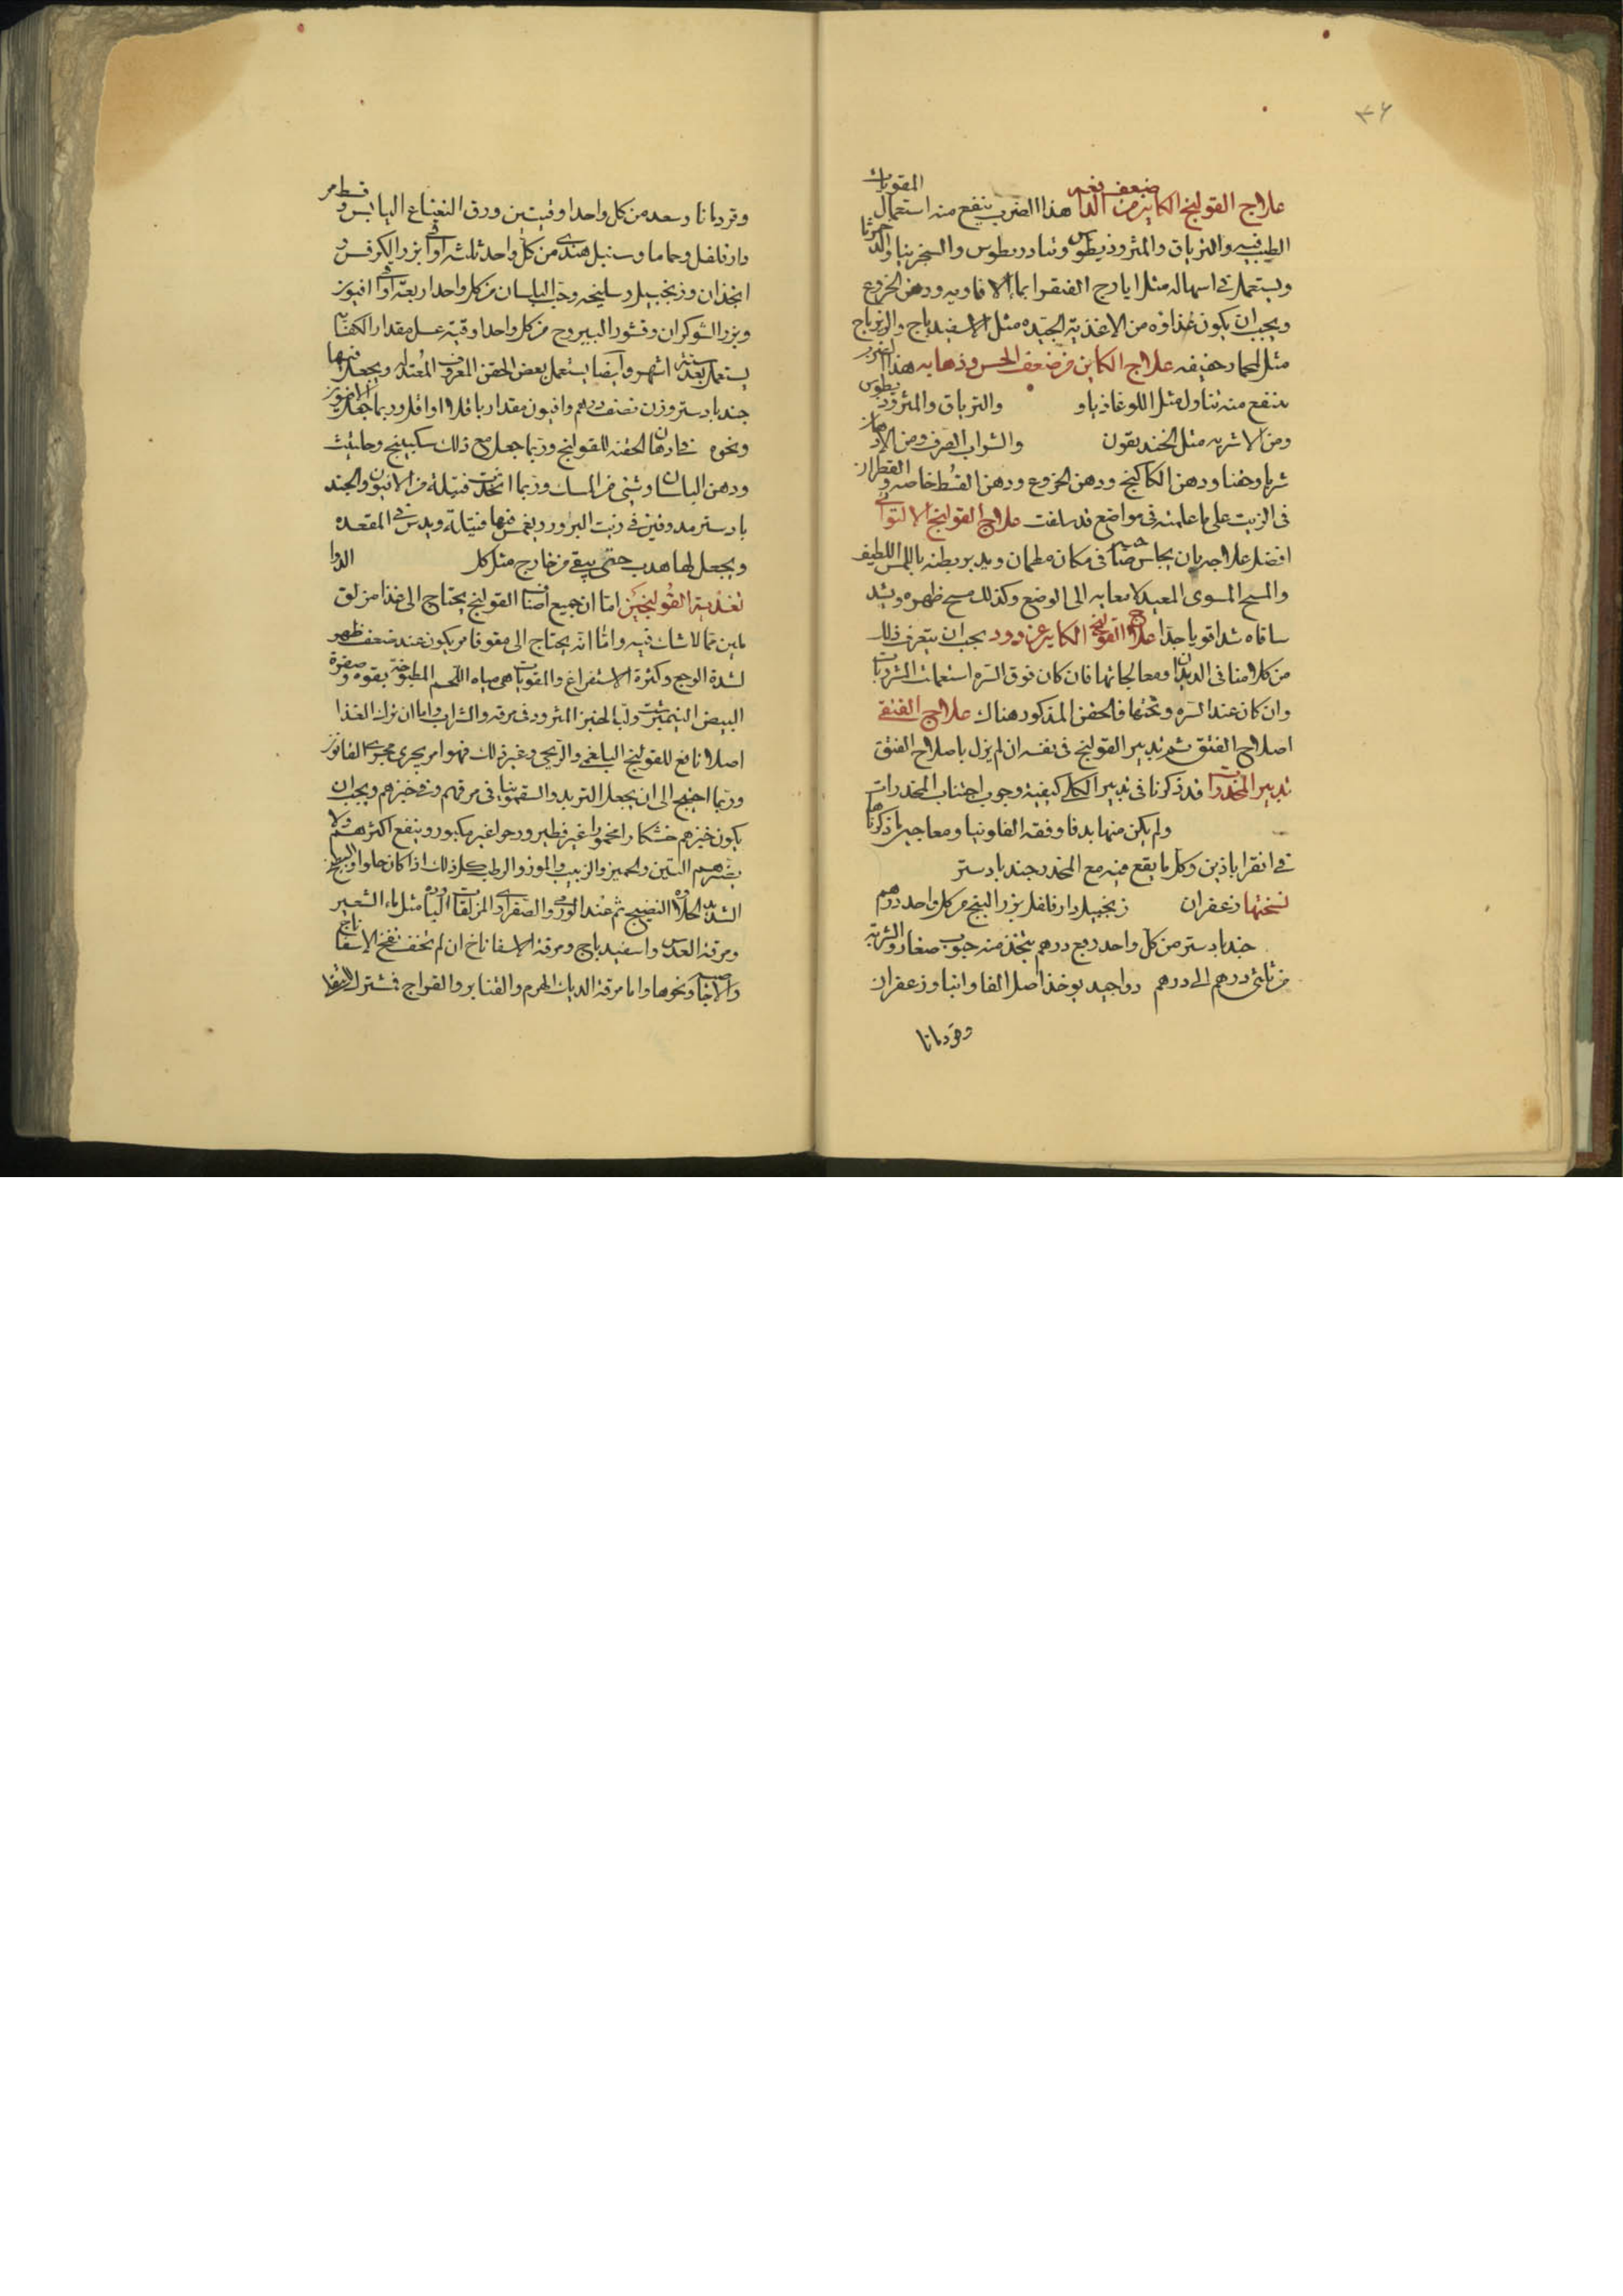 ٣٦
علاج القولنج الكاين من ضعف الدافعه هذا الضرب ينفع منه استعمال المقويات
الطيبه والترياق والمثروذيطوس وتنادريطوس والسجزنيا والدحمرثا
ويستعمل في اسهاله مثل ايارج الفيقرا بماء الافاويه ودهن الخروع
ويجب ان يكون غذاؤه من الاغذية الجيده مثل الاسفيدباج والزيرباج
علاج الكاين من ضعف الحس وذهابه هذا الضرب
ينفع منه تناول مثل اللوغاذياو والترياق والمثروذيطوس
ومن الاشربه مثل الخنديقون والشراب الصرف ومن الادهان
شربا وحقنا ودهن الكاكنج ودهن الخروع ودهن القسط خاصه والقطران
في الزيت على ما علمته في مواضع قد سلفت علاج القولنج الالتوائي
افضل علاجه بان يجلس صاحبه في مكان مطمان ويدبر بطنه باللمس اللطيف
والمسح المسوى المعيد لامعايه الى الوضع وكذلك مسح ظهره ويشد
ساقاه شدا قويا جدا علاج القولنج الكاين عن دود يجب ان يتعرف ذلك
من كلامنا في الديدان ومعالجاتها فان كان فوق السره استعملت المشروبات
وان كان عند السره وتحتها فالحقن المذكور هناك علاج الفتقي
اصلاح الفتق ثم تدبير القولنج في نفسه ان لم يزل باصلاح الفتق
تدبير المخدرات قد ذكرنا في تدبير الكلي كيفية وجوب اجتناب المخدرات
ولم يكن منها بد فاوفقه الفلونيا ومعاجين ذكرناها
في اقراباذين وكل ما يقع فيه مع المخدر جندبادستر
نسختها زعفران زنجبيل دارفلفل بزر البنج من كل واحد درهم
جندبادستر من كل واحد ربع درهم يتخذ منه حبوب صغار والشربة
من ثلثي درهم الى درهم دواجيد يوخذ اصل الفاوانيا وزعفران
وقردمانا
وقردمانا وسعد من كل واحد اوقيتين ورق النعناع اليابس وقسط مر
ودارفلفل وحماما وسنبل هندي من كل واحد ثلثه اواقي بزر الكرفس و
انجذان وزنجبيل وسليخه وحب البلسان من كل واحد اربعة اواقي افيون
وبزر الشوكران وقشور اليبروح من كل واحد اوقية عسل مقدار الكفاية
يستعمل بعد ستة اشهر وايضا يستعمل بعض الحقن المعروف المعتدله ويجعل فيها
جندبادستر وزن نصف درهم وافيون مقدار باقلا او اقل وربما جعل الافيون
ونحوه في ادهان الحقنه للقولنج وربما جعل مع ذلك سكبينج وحلتيت
ودهن البلسان وشي من المسك وربما اتخذت فتيلة من الافيون والجند
بادستر مدوفين في زيت البزور ويغمس فيها فتيلة ويدس في المقعده
ويجعل لها هدب حتى يبقى من خارج مثل كل الدوا
تغذية القولنجيين اما ان جميع اصناف القولنج يحتاج الى غذا مزلق
ملين مما لا شك فيه واما انه يحتاج الى مقو فامر يكون عند ضعف ظهر
لشدة الوجع وكثرة الاستفراغ والمقويات هي مياه اللحم المطبوخة بقوه وصفرة
البيض النيمبرشت ولباب الخبز المثرود في مرقه والشراب واما ان ترك الغذا
اصلا نافع للقولنج البلغمي والريحي وغير ذلك فهو امر يجري مجرى القانون
وربما احتيج الى ان يجعل التربد والسقمونيا في مرقهم وفي خبزهم ويجب ان
يكون خبزهم خشكارا مخمرا غير فطير ورخوا غير مكبوز وينفع اكثرهم ولا
يضرهم التين والجميز والزبيب والموز والرطب كل ذلك اذا كان حلوا والبطيخ
الشديد الحلاوه النضيج ثم عند الورمي والصفراوي المزلقات البارده مثل ماء الشعير
ومرقة العدس واسفيدباج ومرقة الاسفاناخ ان لم تخف نفخ الاسفاناخ
والاجاص ونحوها واما مرقة الديك الهرم والقنابر والفراريج فمشترك النفع